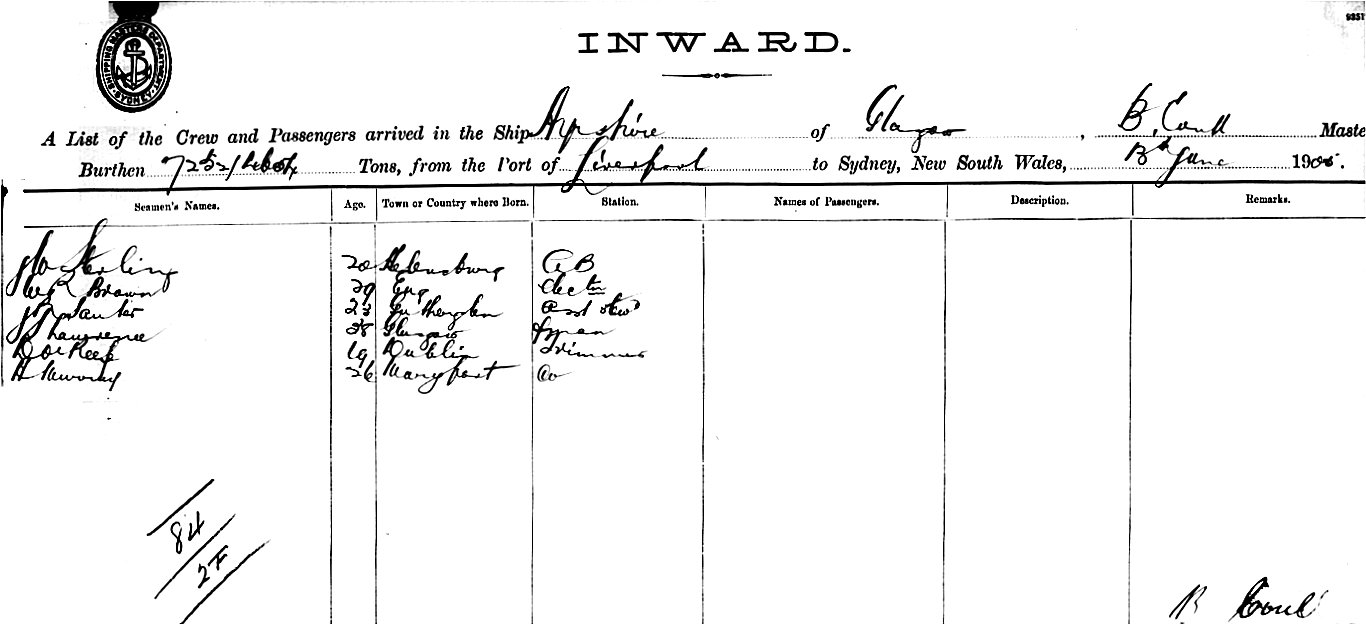 9351
SHIPPING MASTERS DEPARTMENT SYDNEY
INWARD.
A List of the Crew and Passengers arrived in the Ship Ayrshire of Glasgow, B. Coull Maste
Burthen Tons, from the Port of Liverpool to Sydney, New South Wales, June 190
Seamen's Names. Age. Town or Country where Born. Station. Names of Passengers. Description. Remarks.
Sterling 20 Helensburg AB
Brown 29 Eng Electn
23 Asst Stewd
Lawrence 28 Glasgow Fireman
19 Dublin Trimmer
H 26 Maryport Do
84
2F
B Coull